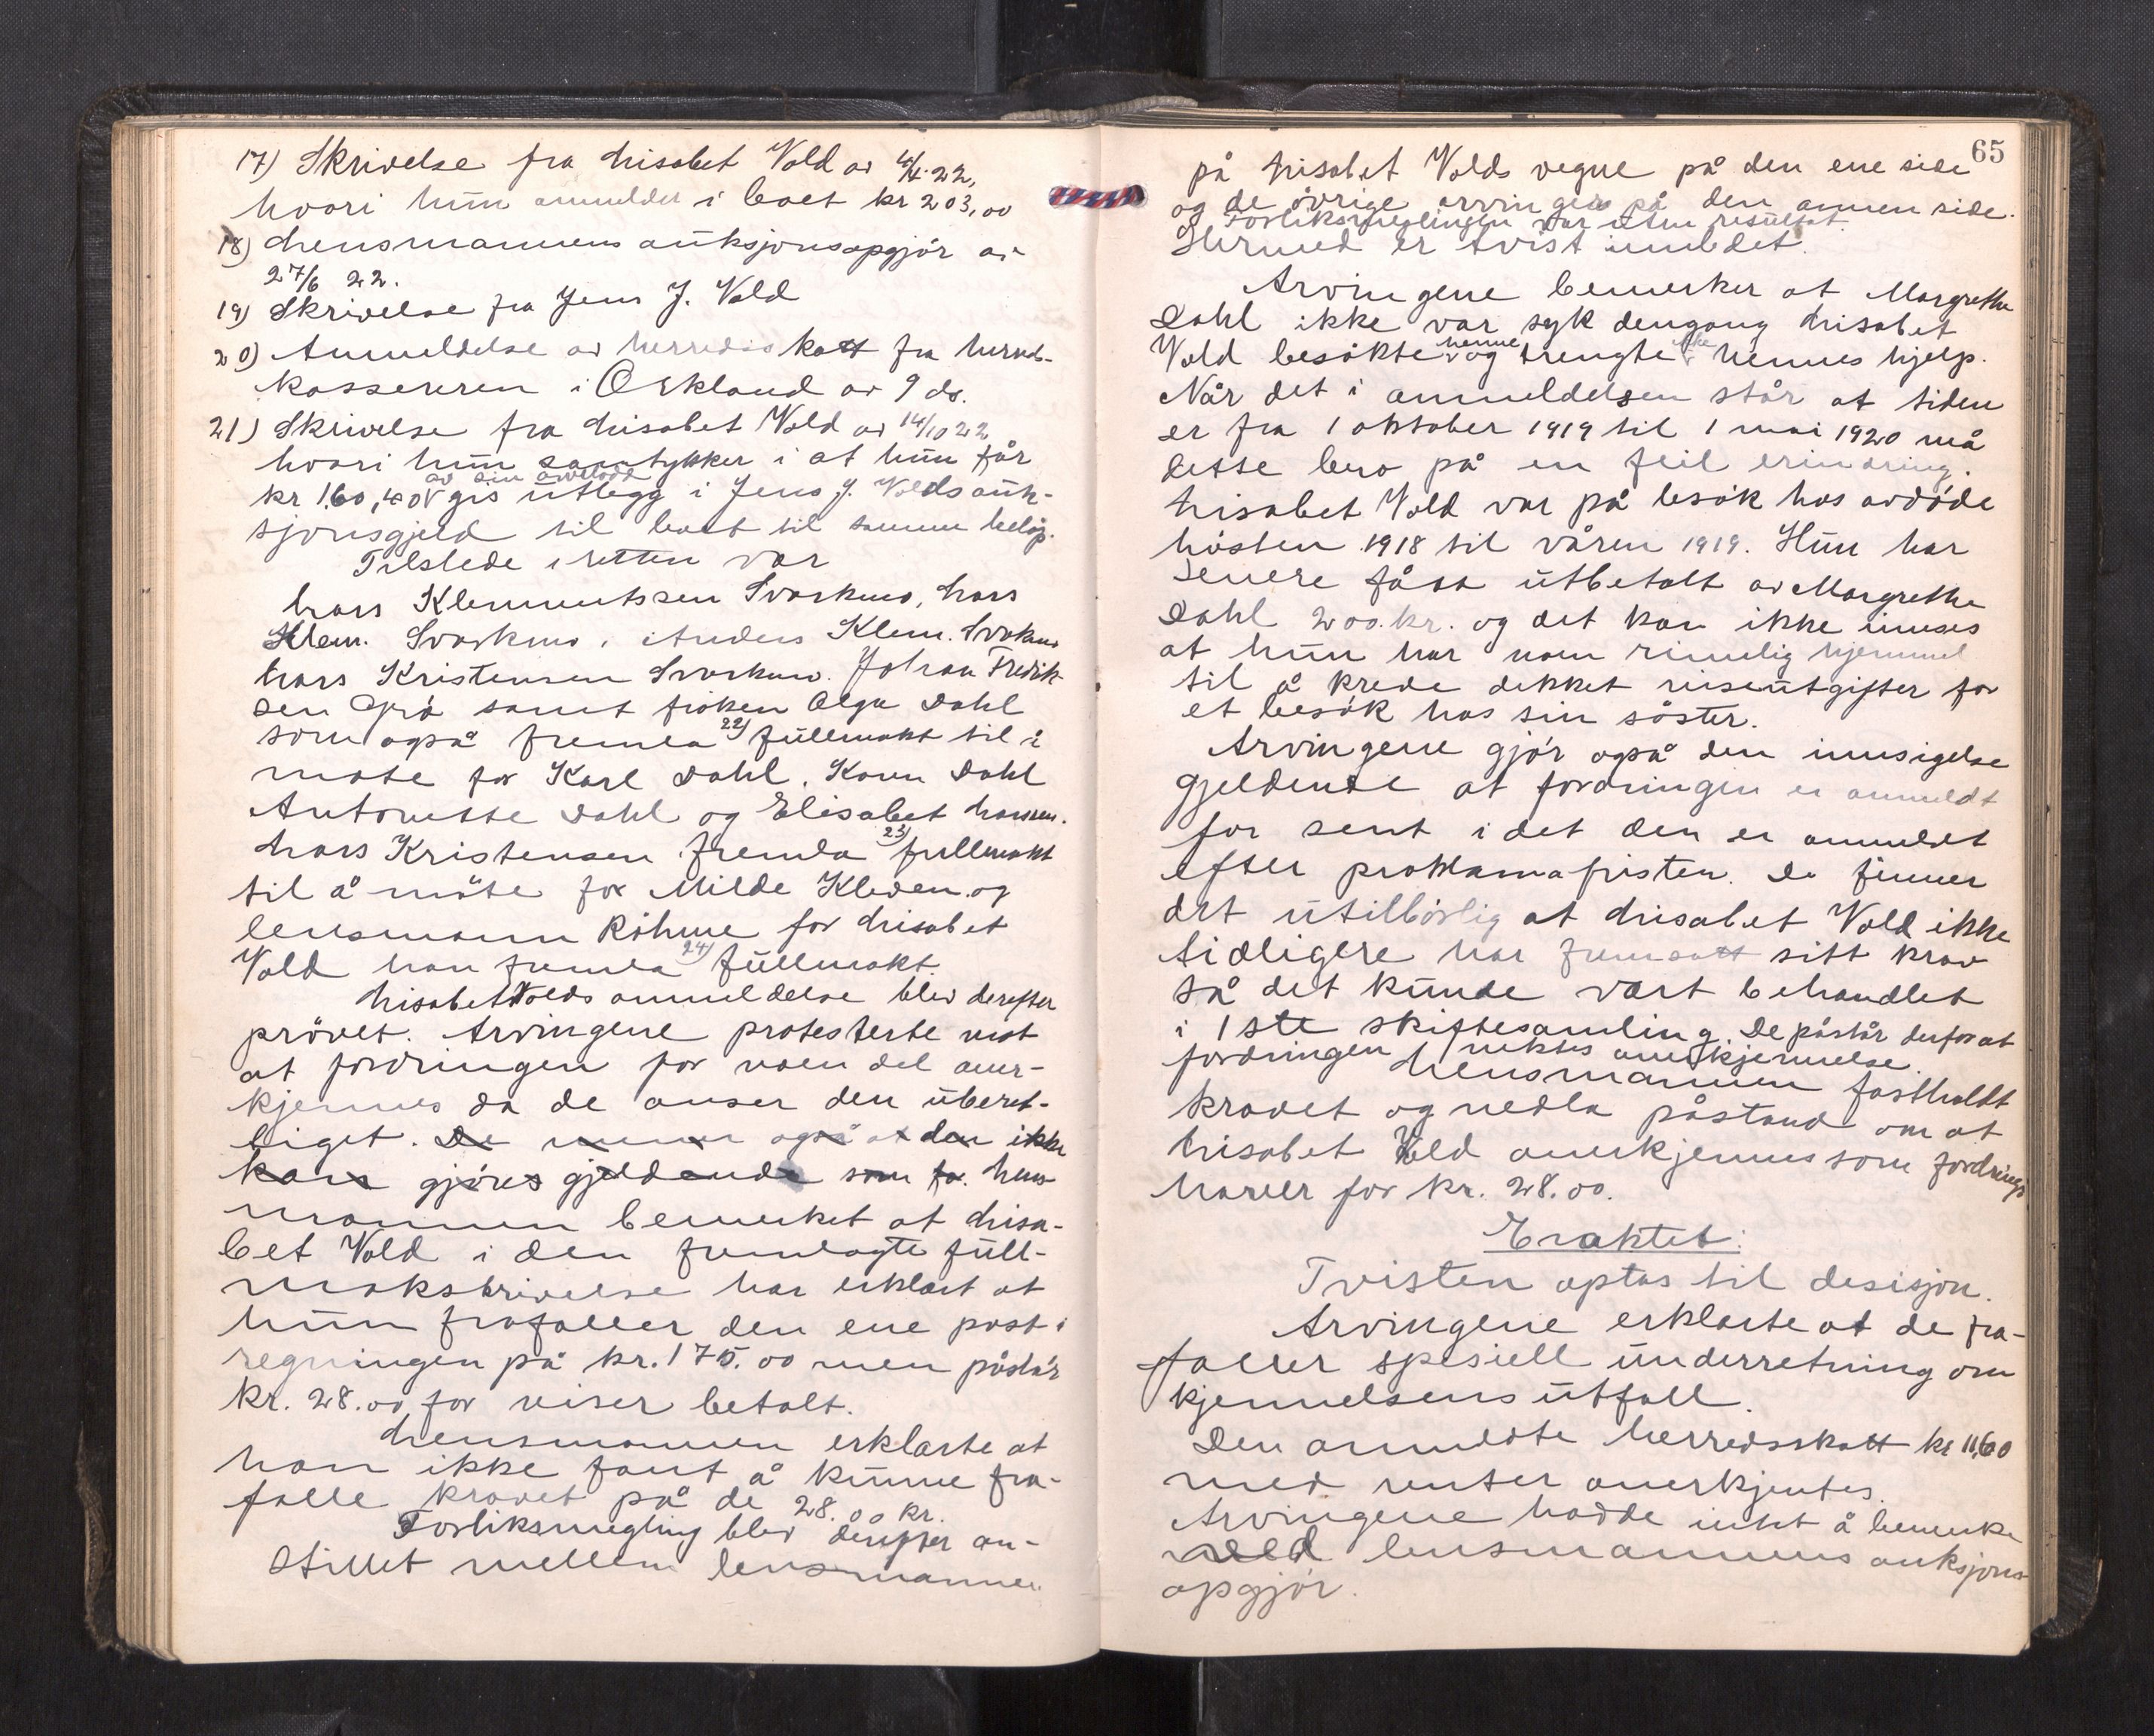 17) Skrivelse fra Lisabet Vold av 4/4.22,
hvori hun anmelder i boet kr 203,00
18) Lensmannens auksjonsopgjör av
27/6 22.
19) Skrivelse fra Jens J. Vold
20) Anmeldelse av herredsskatt fra herreds-
kassereren i Orkland av 9 ds.
21) Skrivelse fra Lisabet Vold av 14/10 22
hvori hun samtykker i at hun får
av sin arvelodd
kr 160,40 gis utlegg i Jens J. Volds auk-
sjonsgjeld til boet til samme belöp.
Tilstede i retten var
Lars Klemmetsen Svorkmo, Lars
Klem. Svorkmo, Anders Klem. Svorkmo
Lars Kristensen Svorkmo. Johan Fredrik-
sen Grö samt fröken Olga Dahl
som også fremla 22) fullmakt til å
möte for Karl Dahl, Karen Dahl
Antonette Dahl og Elisabet Larsen.
Lars Kristensen fremla 23) fullmakt
til å möte for Milde Kleven og
lensmann Röhme for Lisabet
Vold han fremla 24) fullmakt.
Lisabet Volds anmeldelse blev derefter
prövet. Arvingene protesterte mot
at fordringen for noen del aner-
kjennes da de anser den uberet-
tiget. De mener også at den ikke
kan gjöres gjeldende som for. Lens-
mannen bemerket at Lisa-
bet Vold i den fremlagte full-
maktskrivelse har erklært at
hun frafaller den ene post i
regningen på kr. 175.00 men påstår
kr. 28.00 for reiser betalt.
Lensmannen erklærte at
han ikke fant å kunne fra-
falle kravet på de 28.00 kr.
Forliksmegling blev derefter an-
stillet mellem lensmannen
65
på Lisabet Volds vegne på den ene side
og de övrige arvinger på den annen side.
Forliksmeglingen var uten resultat.
Hermed er tvist innledet.
Arvingene bemerker at Margrethe
Dahl ikke var syk dengang Lisabet
Vold besökte henne og trengte ikke hennes hjelp.
Når det i anmeldelsen står at tiden
er fra 1 oktober 1919 til 1 mai 1920 må
dette bero på en feil erindring.
Lisabet Vold var på besök hos avdöde
hösten 1918 til våren 1919. Hun har
senere fått utbetalt av Margrethe
Dahl 200.kr. og det kan ikke innses
at hun har noen rimelig hjemmel
til å kreve dekket reiseutgifter for
et besök hos sin söster.
Arvingene gjör også den innsigelse
gjeldende at fordringen er anmeldt
for sent i det den er anmeldt
efter proklamafristen. De finner
det utilbörlig at Lisabet Vold ikke
tidligere har fremsatt sitt krav
så det kunde vært behandlet
i 1ste skiftesamling. De påstår derfor at
fordringen nektes anerkjennelse.
Lensmannen fastholdt
kravet og nedla påstand om at
Lisabet Vold anerkjennes som fordrings
haver for kr. 28.00.
Eraktet:
Tvisten optas til desisjon.
Arvingene erklærte at de fra-
faller spesiell underretning om
kjennelsens utfall.
Den anmeldte herredsskatt kr 11,60
med renter anerkjentes.
Arvingene hadde intet å bemerke
ved lensmannens auksjons
opgjör.